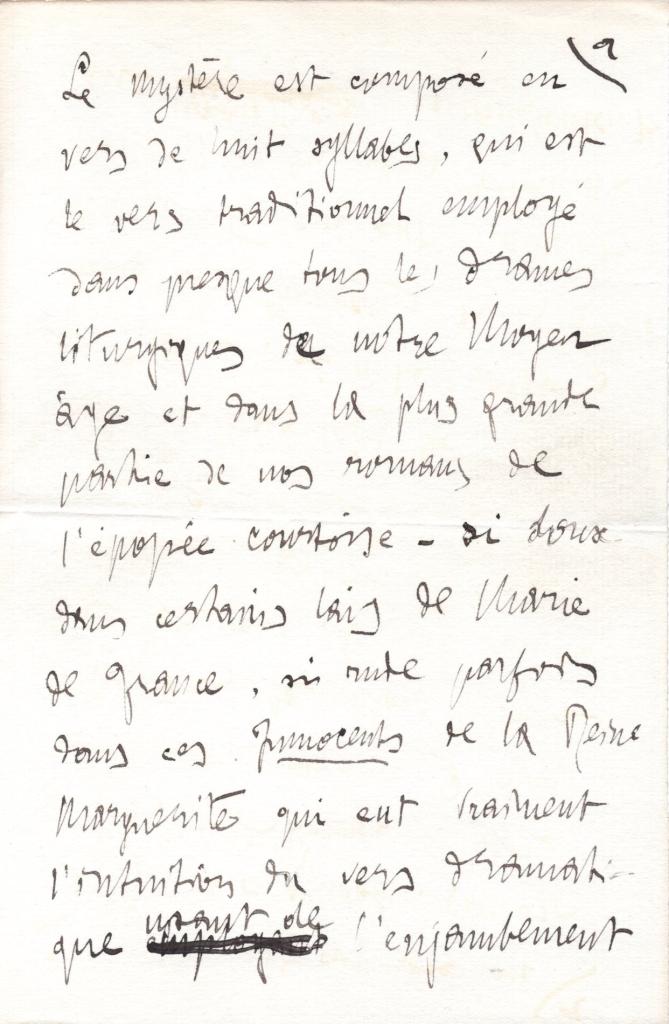 9
Le mystère est composé en
vers de huit syllabes, qui est
le vers traditionnel employé
dans presque tous les drames
liturgiques de notre Moyen
âge et dans la plus grande
partie de nos romans de
l'épopée courtoise – si doux
dans certains lais de Marie
de France, si rude parfois
dans ces Innocents de la Reine
Marguerite qui eut vraiment
l'intuition du vers dramati-
que usant de l'enjambement